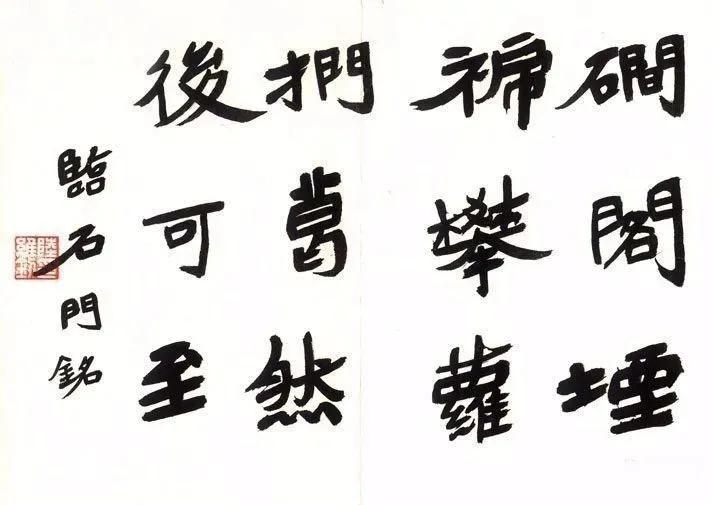 磵閣堙
禘攀蘿
捫葛然
後可至
臨石門銘